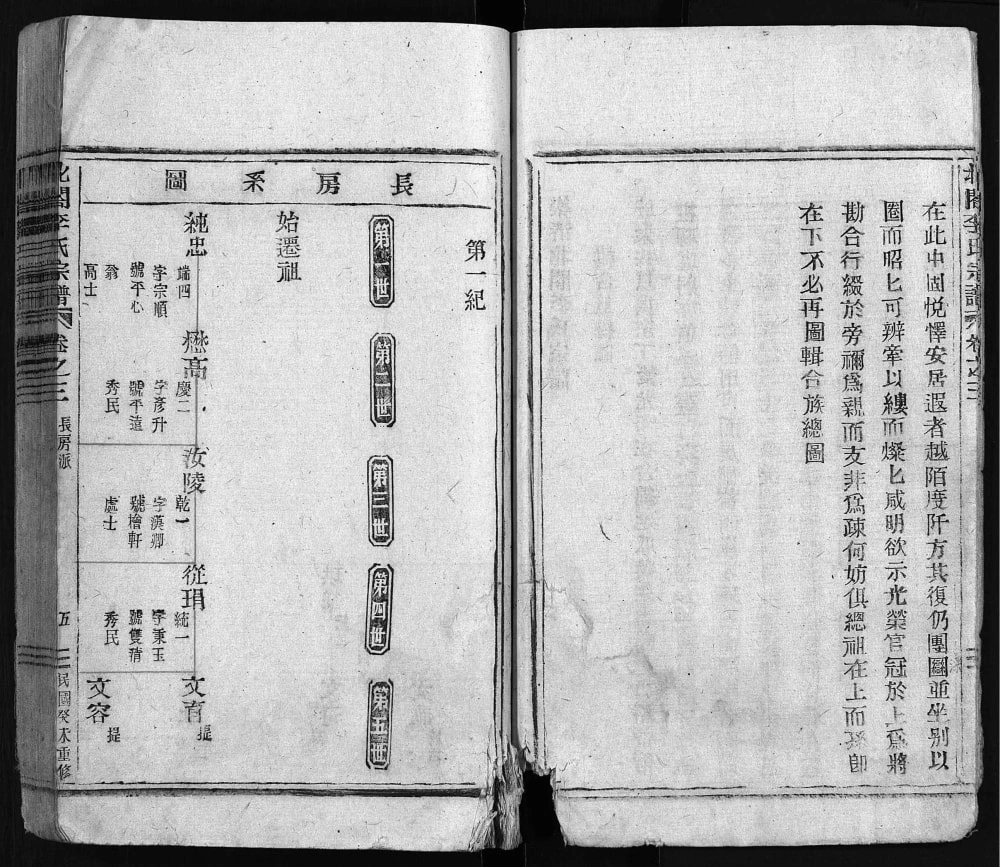 北閣李氏宗譜 卷之三
在此中國悅懌安居遐者越陌度阡方其復仍團圞並坐別以
圈而昭匕可辨牽以縷而燦匕咸明欲示光榮官冠於上爲將
勘合行綴於旁禰爲親而支非爲疎何妨俱總祖在上而孫卽
在下不必再圖輯合族總圖
長房系圖
第一紀
第一世
第二世
第三世
第四世
第五世
始遷祖
純忠
端四
字宗順
號平心
翁
高士
懋高
慶二
字彥升
號平遠
秀民
汝陵
乾一
字漢卿
號檜軒
處士
從琄
統一
字秉玉
號雙清
秀民
文育 提
文容 提
北閣李氏宗譜 卷之三 長房派 五 民國癸未重修